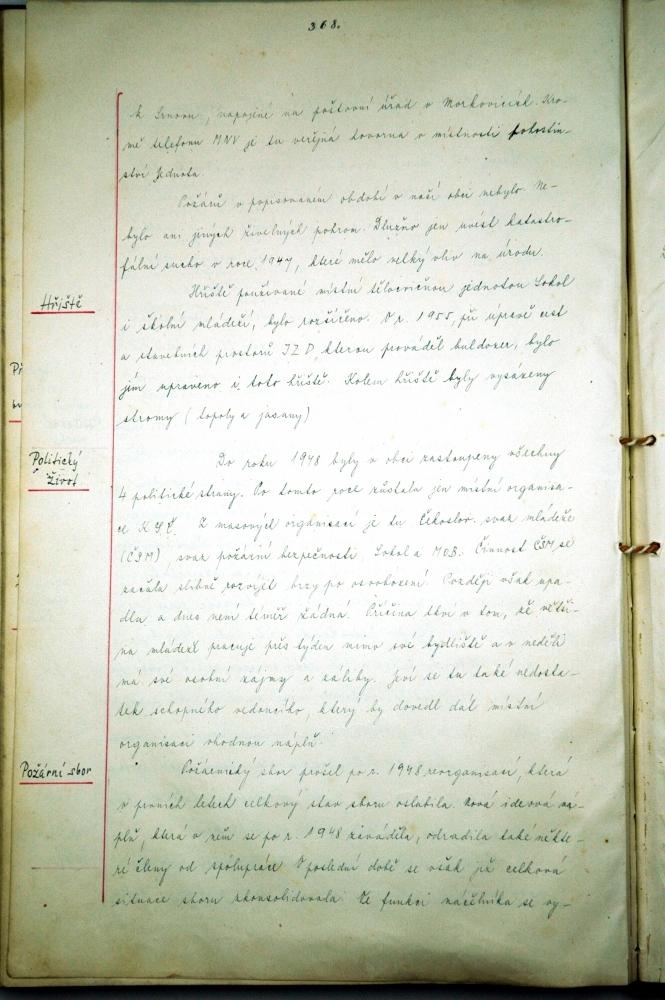 368.
k Srnovu, napojené na poštovní úřad v Morkovicích. Kro-
mě telefonu MNV je tu veřejná hovorna v místnosti pohostin-
ství Jednota.
Požárů v popisovaném období v naší obci nebylo. Ne-
bylo ani jiných živelných pohrom. Dlužno jen uvést katastro-
fální sucho v roce 1947, které mělo velký vliv na úrodu.
Hřiště
Hřiště používané místní tělocvičnou jednotou Sokol
i školní mládeží, bylo rozšířeno. V r. 1955, při úpravě cest
a stavebních prostorů JZD, kterou prováděl buldozer, bylo
jím upraveno i toto hřiště. Kolem hřiště byly vysázeny
stromy (topoly a jasany)
Politický
život
Do roku 1948 byly v obci zastoupeny všechny
4 politické strany. Po tomto roce zůstala jen místní organisa-
ce KSČ. Z masových organisací je tu Českoslov. svaz mládeže
(ČSM), svaz požární bezpečnosti, Sokol a MOB. Činnost ČSM se
začala slibně rozvíjet brzy po osvobození. Později však upa-
dla a dnes není téměř žádná. Příčina tkví v tom, že větši-
na mládeže pracuje přes týden mimo své bydliště a v neděli
má své osobní zájmy a záliby. Jeví se tu také nedosta-
tek schopného vedoucího, který by dovedl dát místní
organisaci vhodnou náplň.
Požární sbor
Požárnický sbor prošel po r. 1948 reorganisací, která
v prvních letech celkový stav sboru oslabila. Nová ideová ná-
plň, která v něm se po r. 1948 zaváděla, odradila také někte-
ré členy od spolupráce. V poslední době se však již celková
situace sboru zkonsolidovala. Ve funkci náčelníka se vy-